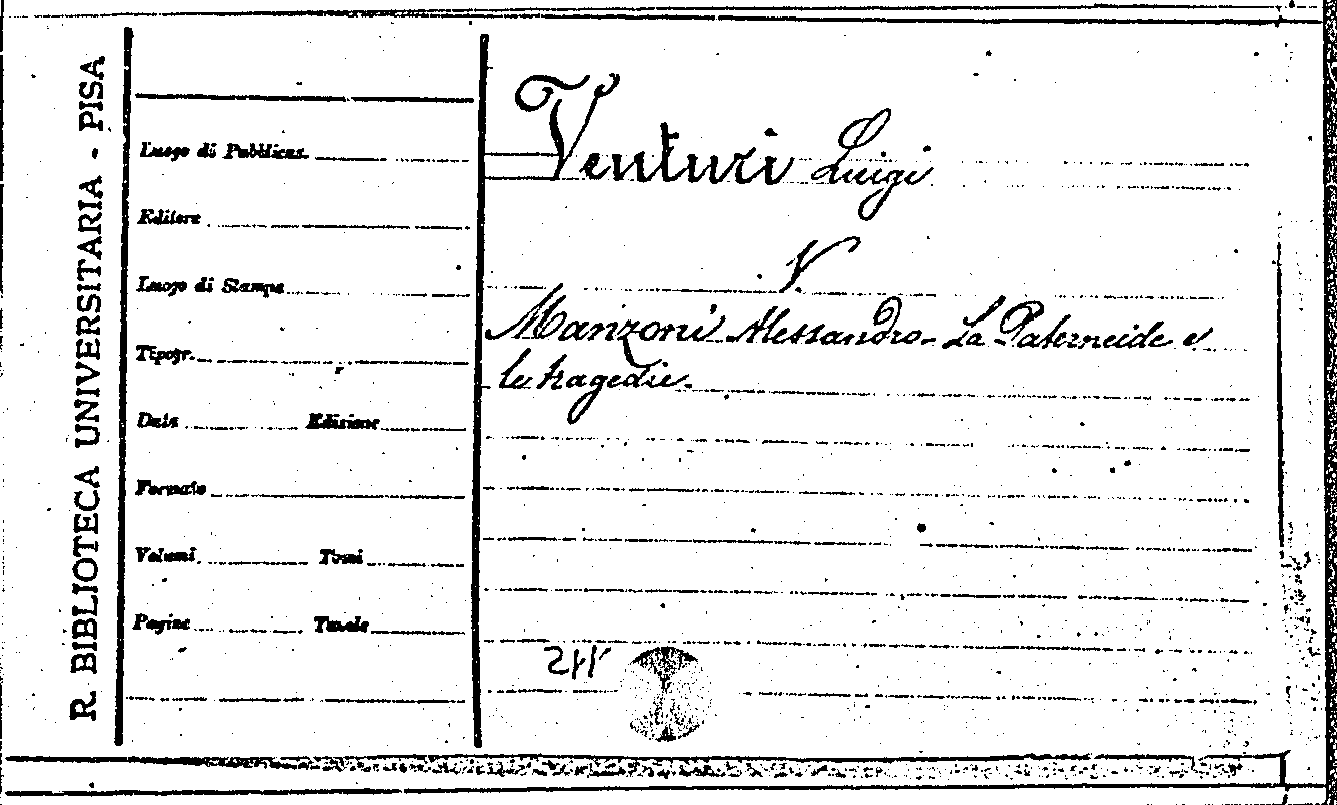 R. BIBLIOTECA UNIVERSITARIA - PISA
Luogo di Pubblicaz.
Editore
Luogo di Stampa
Tipogr.
Data Edizione
Formato
Volumi Tomi
Pagine Tavole
Venturi Luigi
V.
Manzoni Alessandro - La Paterneide e
le tragedie.